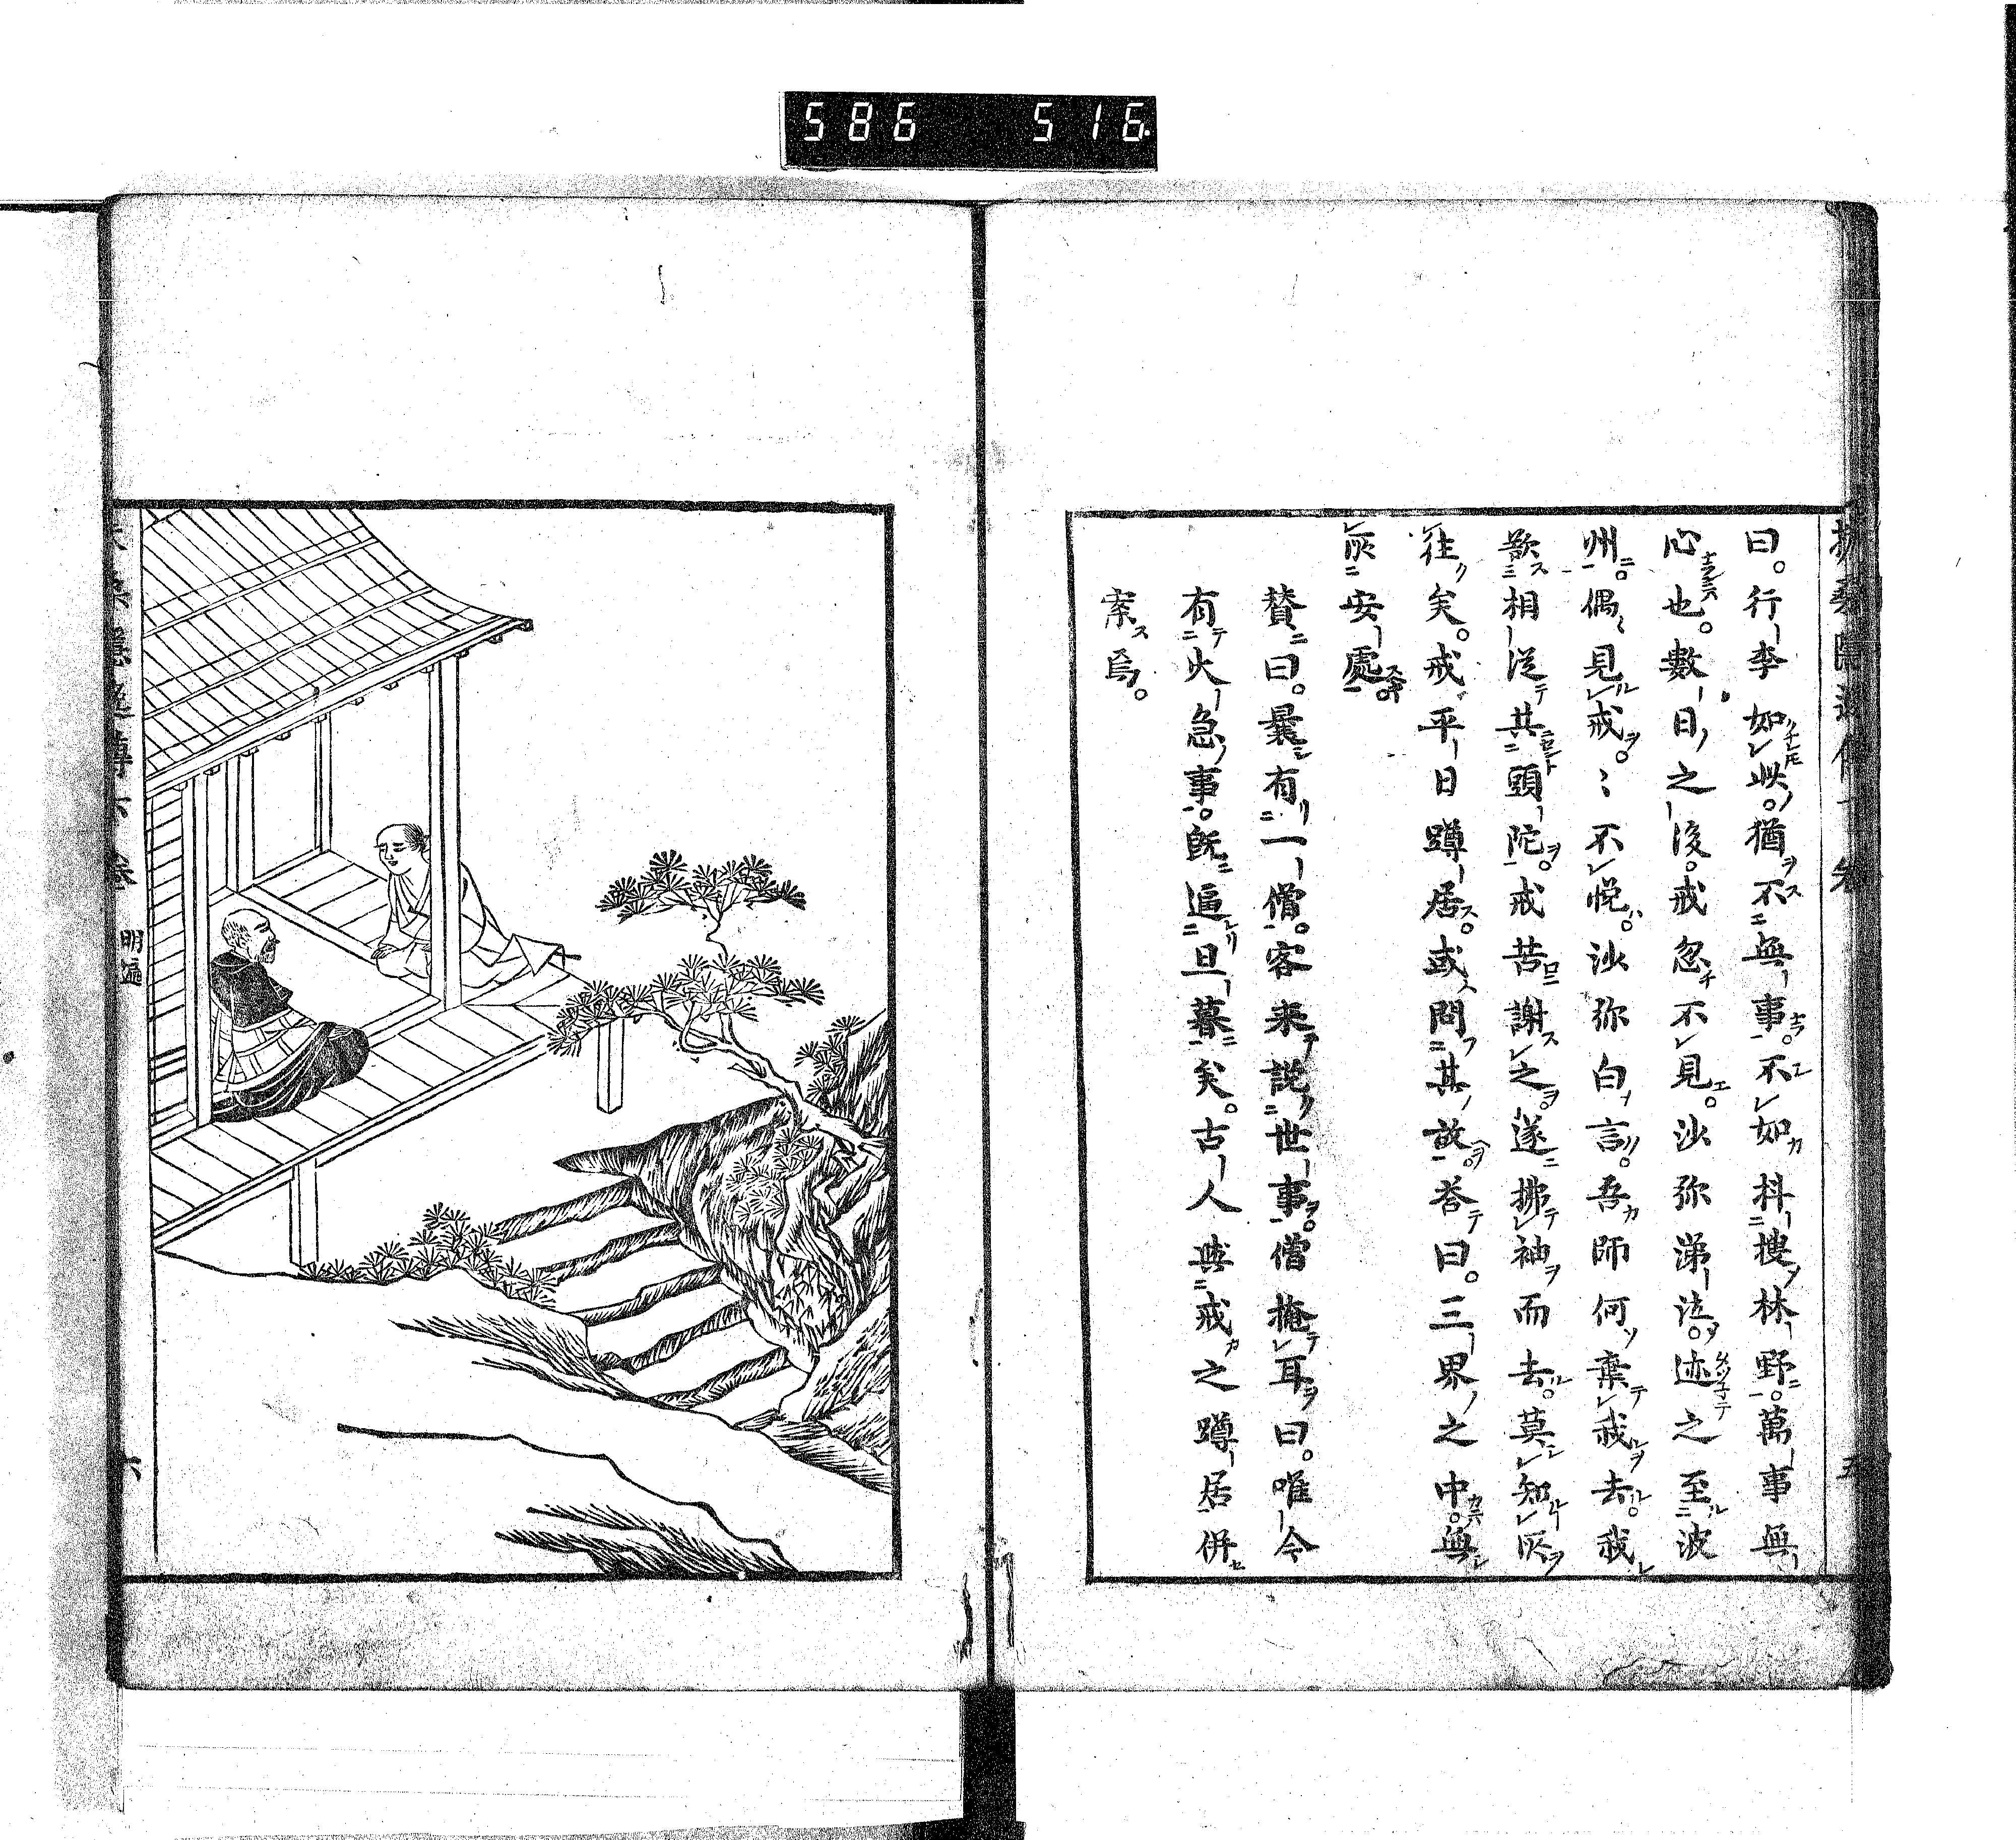 586 516.
曰。行李如此。猶不無事。不如抖擻林野。萬事無
心也。數日之後。戒忽不見。沙弥涕泣。迹之至波
州。偶見戒。〻不悦。沙弥白言。吾師何棄我去。我
欲相從其頭陀。戒苦謝之。遂拂袖而去。莫知所
徃矣。戒平日蹲居。或問其故。答曰。三界之中。無
所安處。
賛曰。曩有一僧。客来説世事。僧掩耳曰。唯今
有火急事。既逼旦暮矣。古人與戒之蹲居併
案焉。
扶桑隱逸傳
五
扶桑隱逸傳六卷
明遍
六